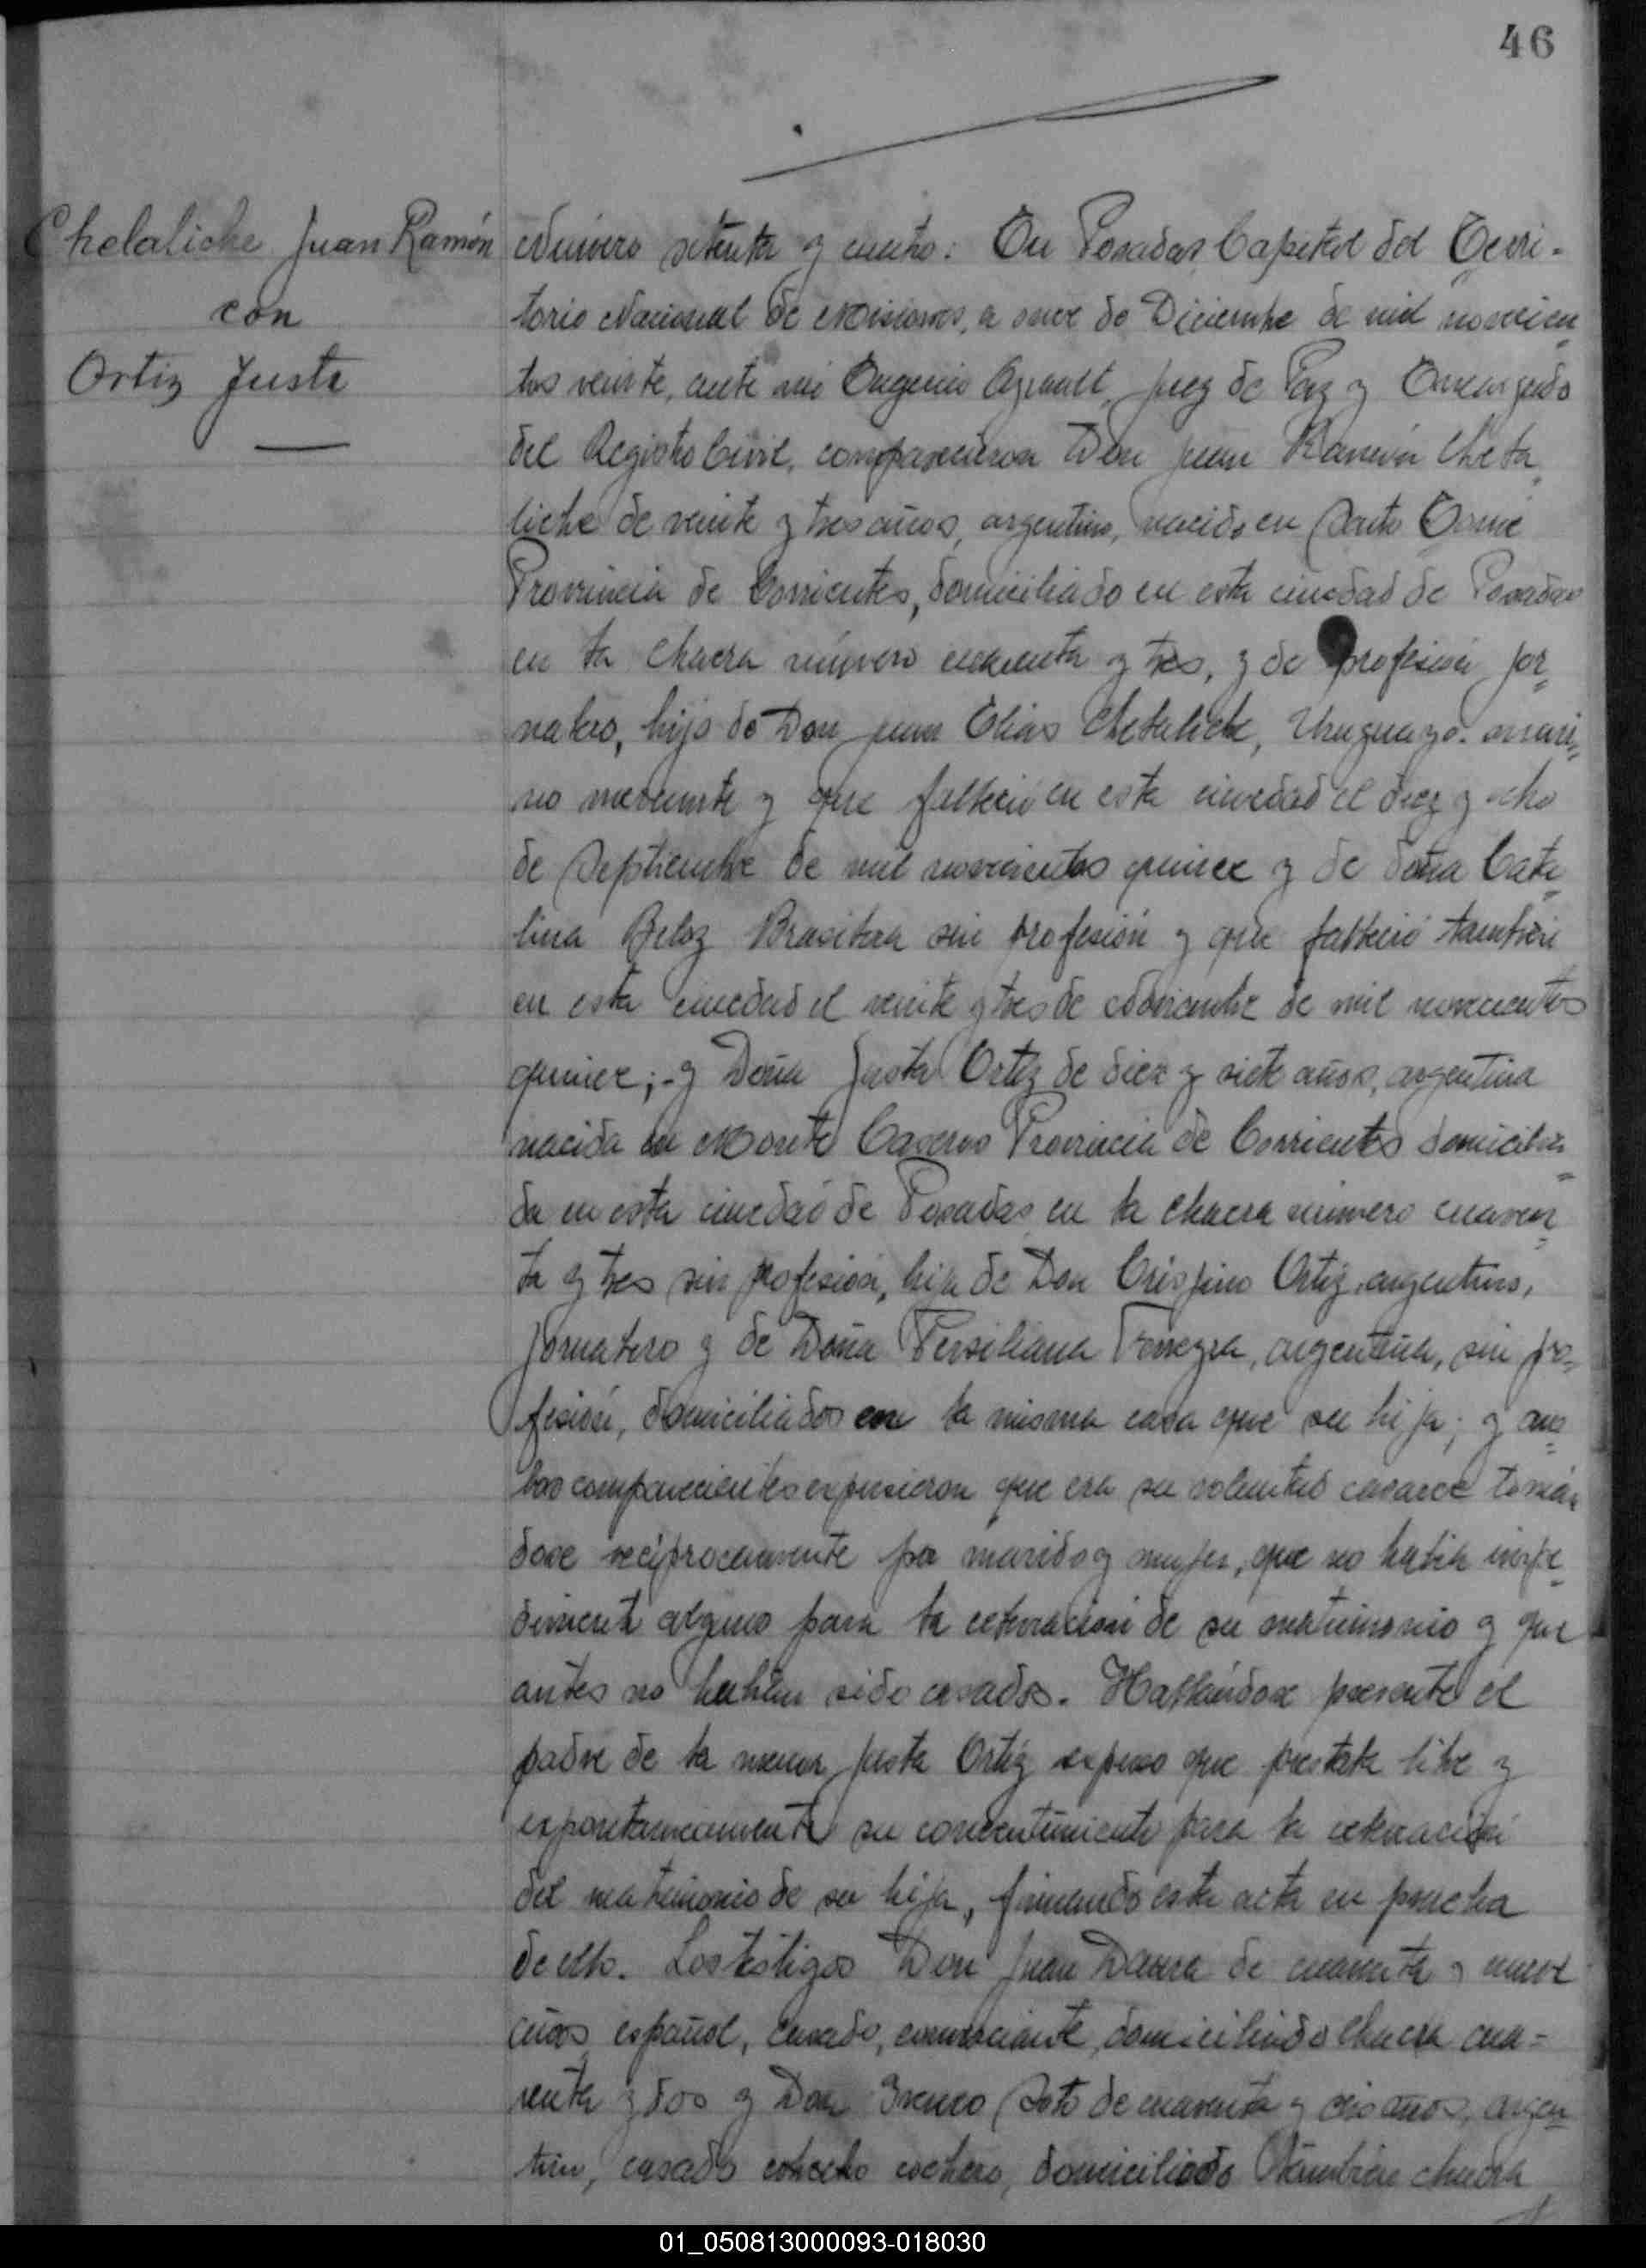 46
Chelaliche Juan Ramón
con
Ortiz Justa
Número setenta y cuatro: En Posadas Capital del Terri-
torio Nacional de Misiones, a once de Diciembre de mil novecien
tos veinte, ante mi Eugenio Ayrault, Juez de Paz y Encargado
del Registro Civil, comparecieron Don Juan Ramón Chela
liche de veinte y tres años, argentino, nacido en Santo Tomé
Provincia de Corrientes, domiciliado en esta ciudad de Posadas
en la chacra número cuarenta y tres, y de profesión jor
nalero, hijo de Don Juan Elías Chelaliche, Uruguayo. mari
no mercante y que falleció en esta ciudad el diez y ocho
de Septiembre de mil novecientos quince y de doña Cata
lina Beloz Brasilera sin profesión y que falleció también
en esta ciudad el veinte y tres de Noviembre de mil novecientos
quince;-y Doña Justa Ortiz de diez y siete años, argentina
nacida en Monte Caseros Provincia de Corrientes domicilia
da en esta ciudad de Posadas en la chacra número cuaren
ta y tres sin profesión, hija de Don Crispino Ortiz, argentino,
jornalero y de Doña Persiliana argentina, sin pro
fesión, domiciliados en la misma casa que su hija; y am
bos comparecientes expusieron que era su voluntad casarce tomán
dose recíprocamente por marido y mujer, que no había impe
dimento alguno para la celebración de su matrimonio y que
antes no habían sido casados. Hallándose presente el
padre de la menor Justa Ortiz expuso que prestaba libre y
expontaneamente su consentimiento para la celebración
del matrimonio de su hija, firmando esta acta en prueba
de ello. Los testigos Don Juan Daura de cuarenta y nueve
años español, casado, comerciante, domiciliado chacra cua-
renta y dos y Don Ireneo Soto de cuarenta y años, argen
tino, casado cochero, domiciliado también chacra
01_050813000093-018030